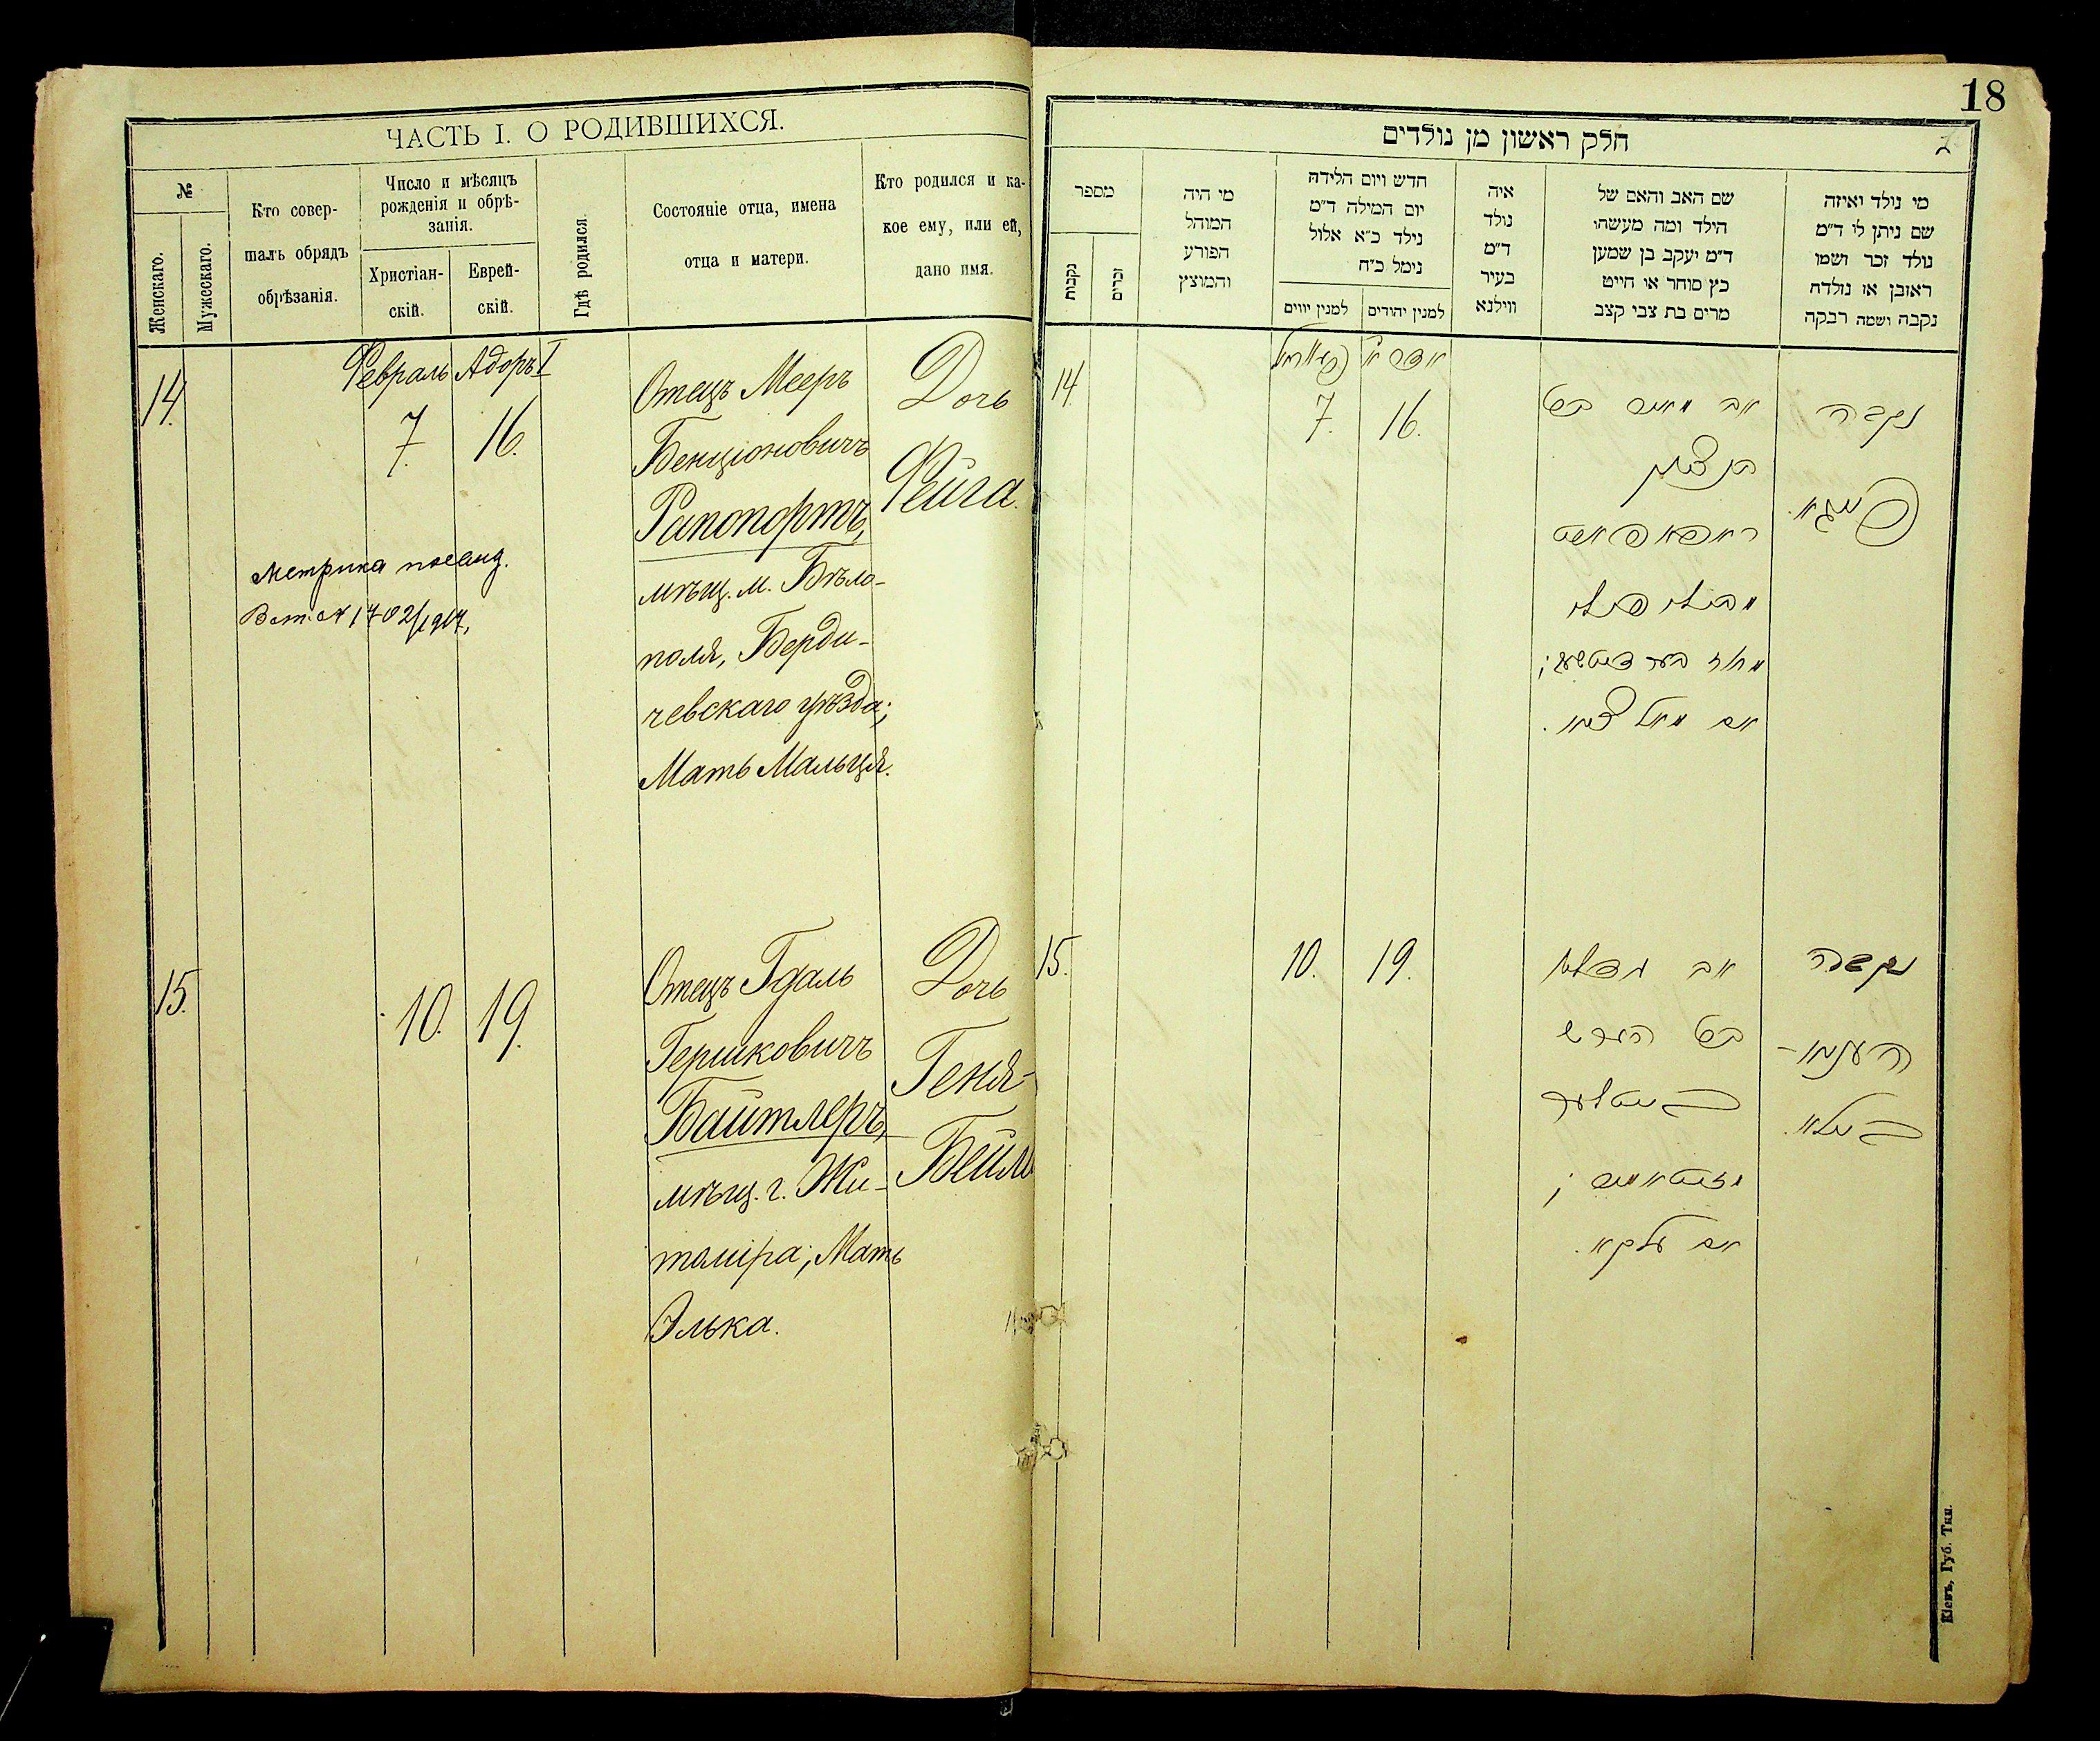 ЧАСТЬ I. О РОДИВШИХСЯ.
№
Женскаго.
Мужескаго.
Кто совер-
шалъ обрядъ
обрѣзанія.
Число и мѣсяцъ
рожденія и обрѣ-
занія.
Христіан-
скій.
Еврей-
скій.
Гдѣ родился.
Состояніе отца, имена
отца и матери.
Кто родился и ка-
кое ему, или ей,
дано имя.
Февраль Адоръ I
14.
7.
16.
Отецъ Мееръ
Бенціоновичъ
Рапопортъ,
мѣщ. м. Бѣло-
поля, Берди-
чевскаго уѣзда;
Мать Мальця.
Дочь
Фейга.
Метрика
№ 1702/1917,
15.
10.
19.
Отецъ Гдаль
Гершковичъ
Байтлеръ,
мѣщ. г. Жи-
томіра; Мать
Элька.
Дочь
Геня-
Бейля
18
חלק ראשון מן נולדים
מספר
נקבות
זכרים
מי היה
המוהל
הפורע
והמוצץ
חדש ויום הלידה
יום המילה ד״מ
נילד כ״א אלול
נימל כ״ח
למנין יווים
למנין יהודים
איה
נולד
ד״מ
בעיר
ווילנא
שם האב והאם של
הילד ומה מעשהו
ד״מ יעקב בן שמען
כץ סוחר או חייט
מרים בת צבי קצב
מי נולד ואיזה
שם ניתן לו ד״מ
נולד זכר ושמו
ראובן או נולדת
נקבה ושמה רבקה
14
7.
16.
אדר א׳
אב מאיר
בן ציון
ראפאפארט
אם מאלציא.
נקבה
פייגא.
15.
10.
19.
אב גדליה
הערש
בייטלער
זיטאמיר;
אם עלקא.
נקבה
העניא-
ביילא.
Кіевъ, Губ. Тип.